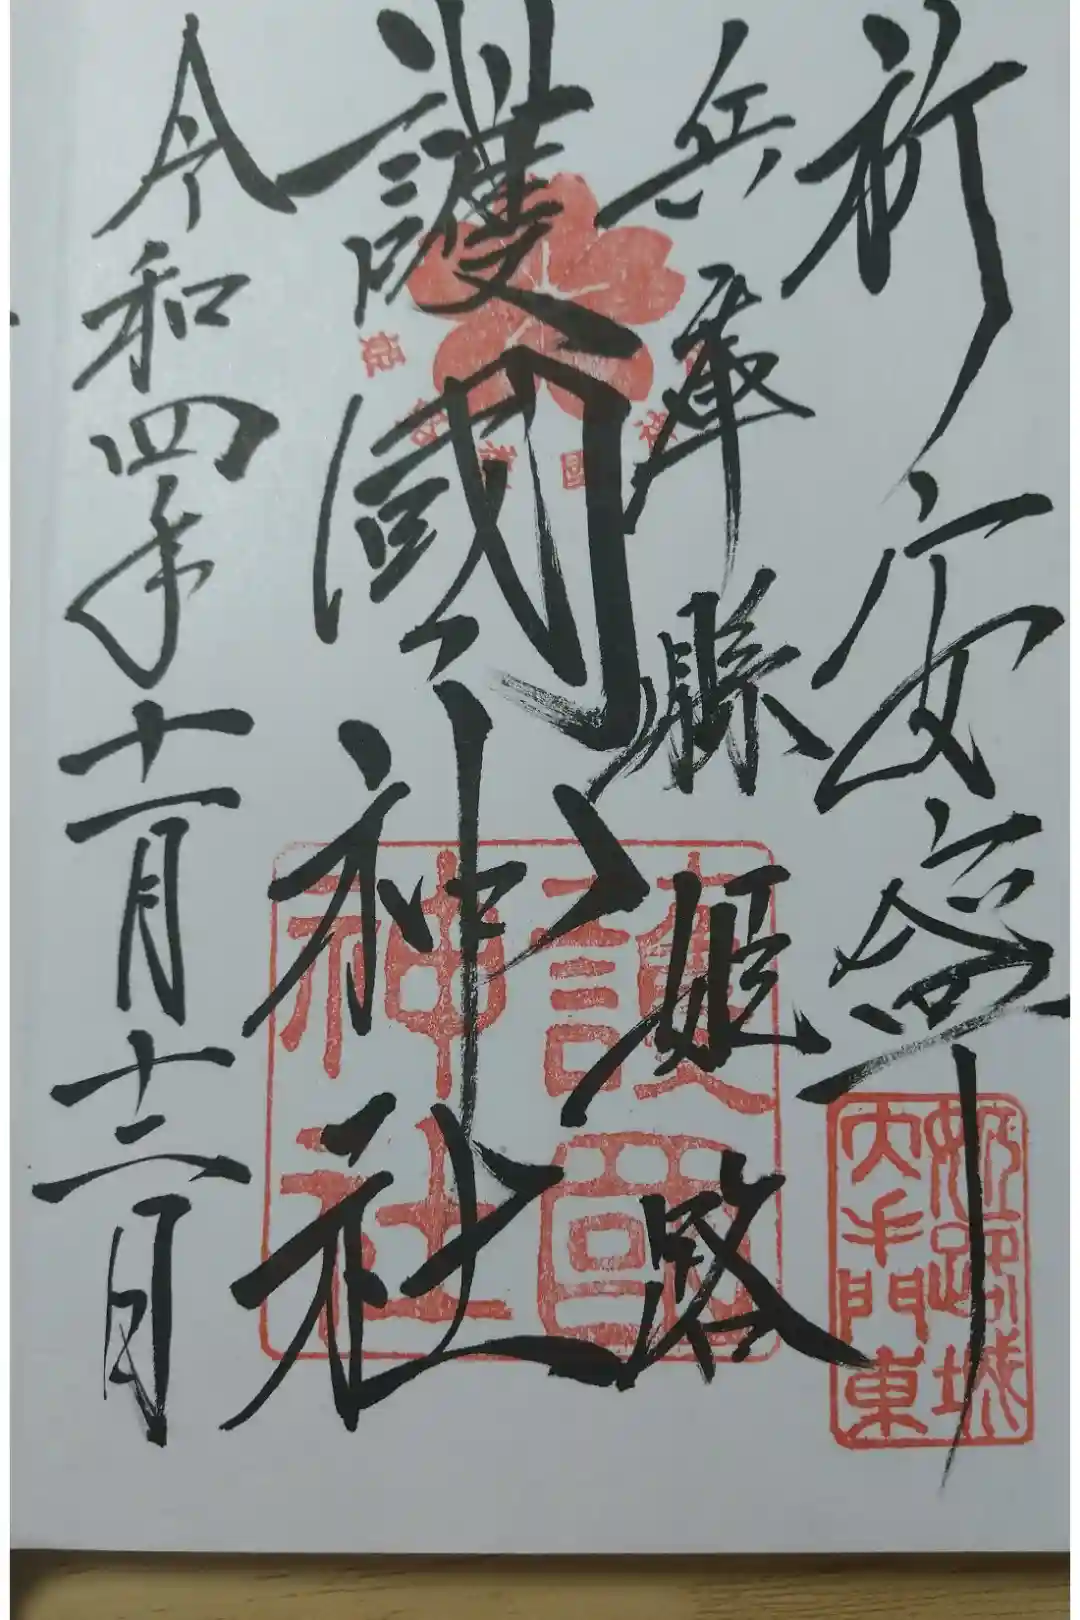 祈安寧
兵庫縣姫路
護國神社
令和四年十一月十二日
姫路護國神社
護國神社
姫路城
大手門東